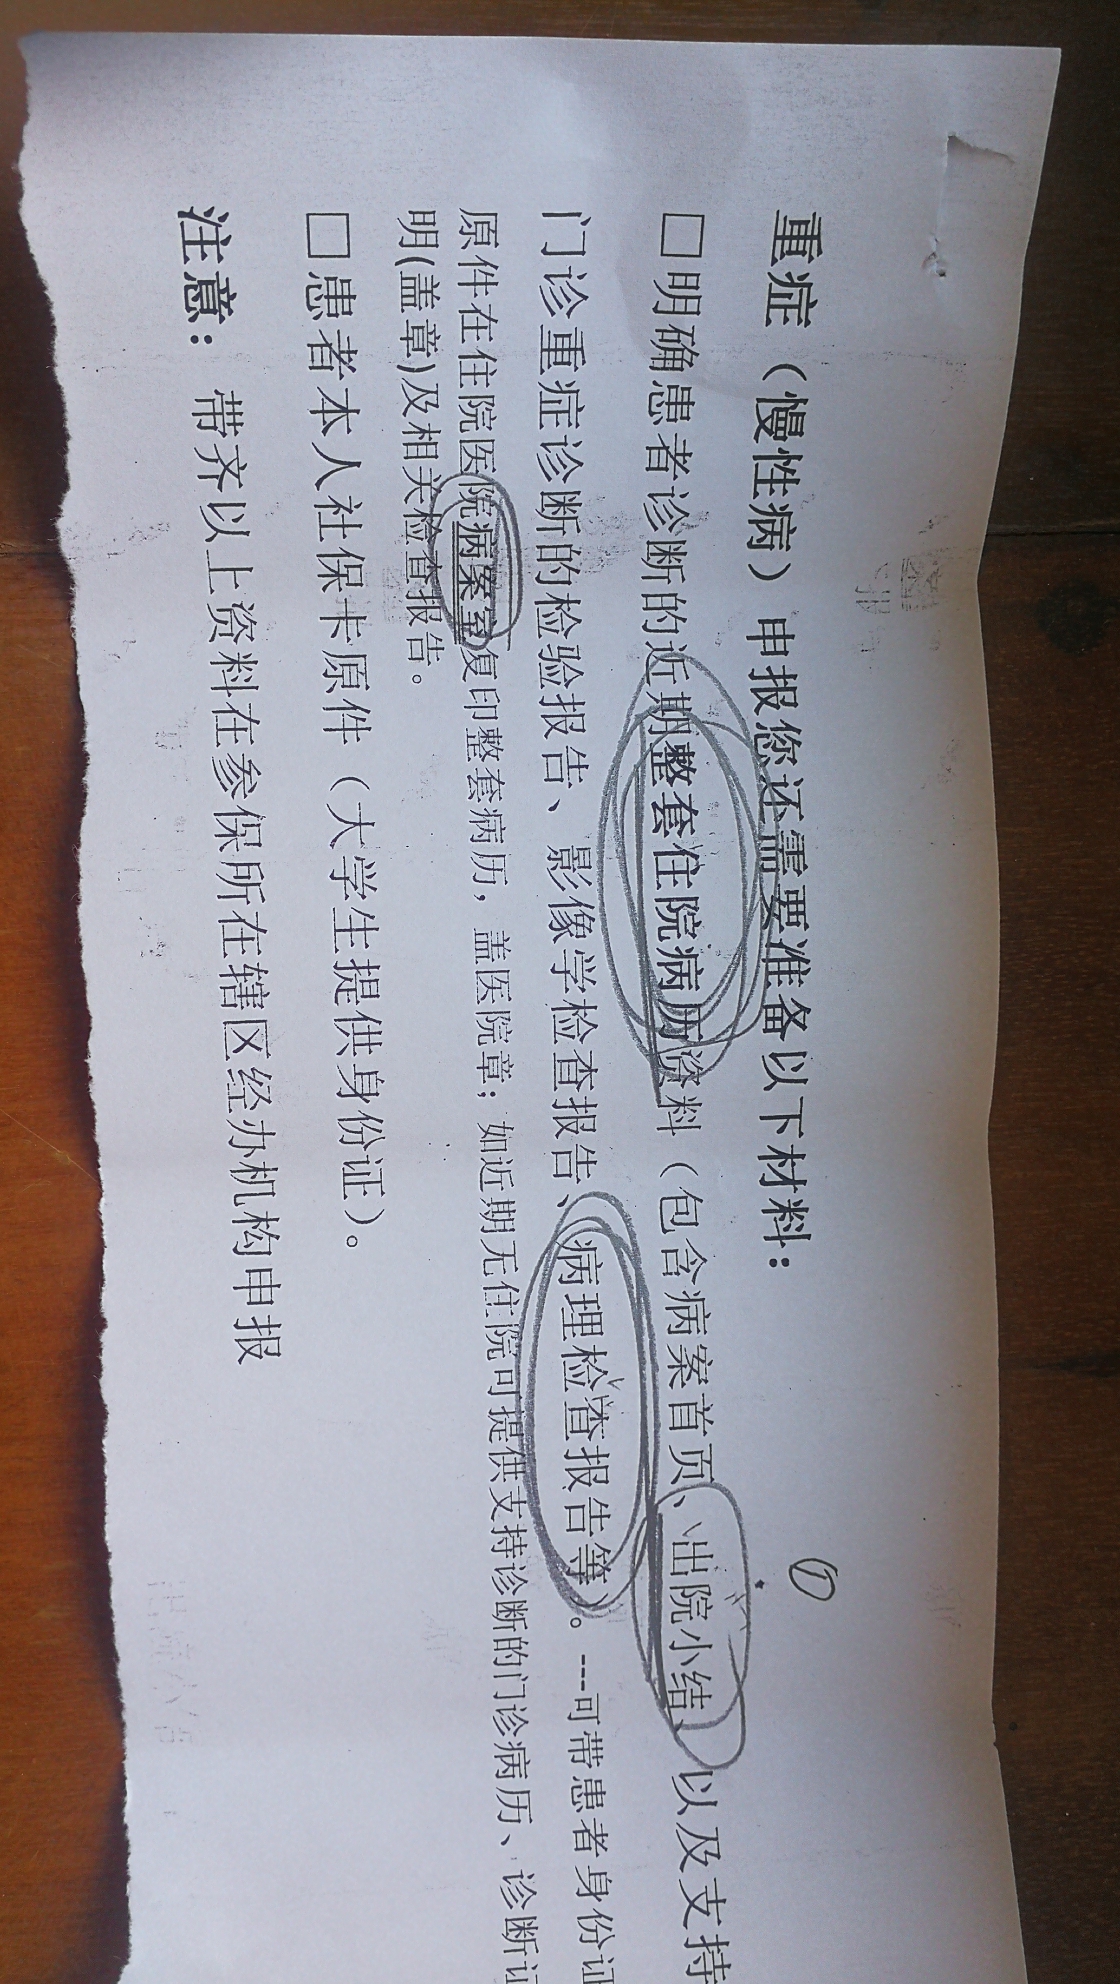 ①
重症（慢性病）申报您还需要准备以下材料：
□明确患者诊断的近期整套住院病历资料（包含病案首页、出院小结、以及支持
门诊重症诊断的检验报告、影像学检查报告、病理检查报告等）。---可带患者身份证
原件在住院医院病案室复印整套病历，盖医院章；如近期无住院可提供支持诊断的门诊病历、诊断证
明(盖章)及相关检查报告。
□患者本人社保卡原件（大学生提供身份证）。
注意：带齐以上资料在参保所在辖区经办机构申报